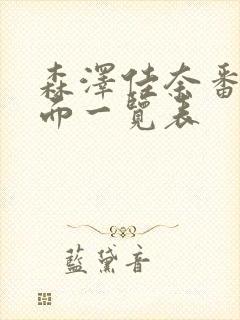 森澤佳奈番
而一覽表
藍黛音